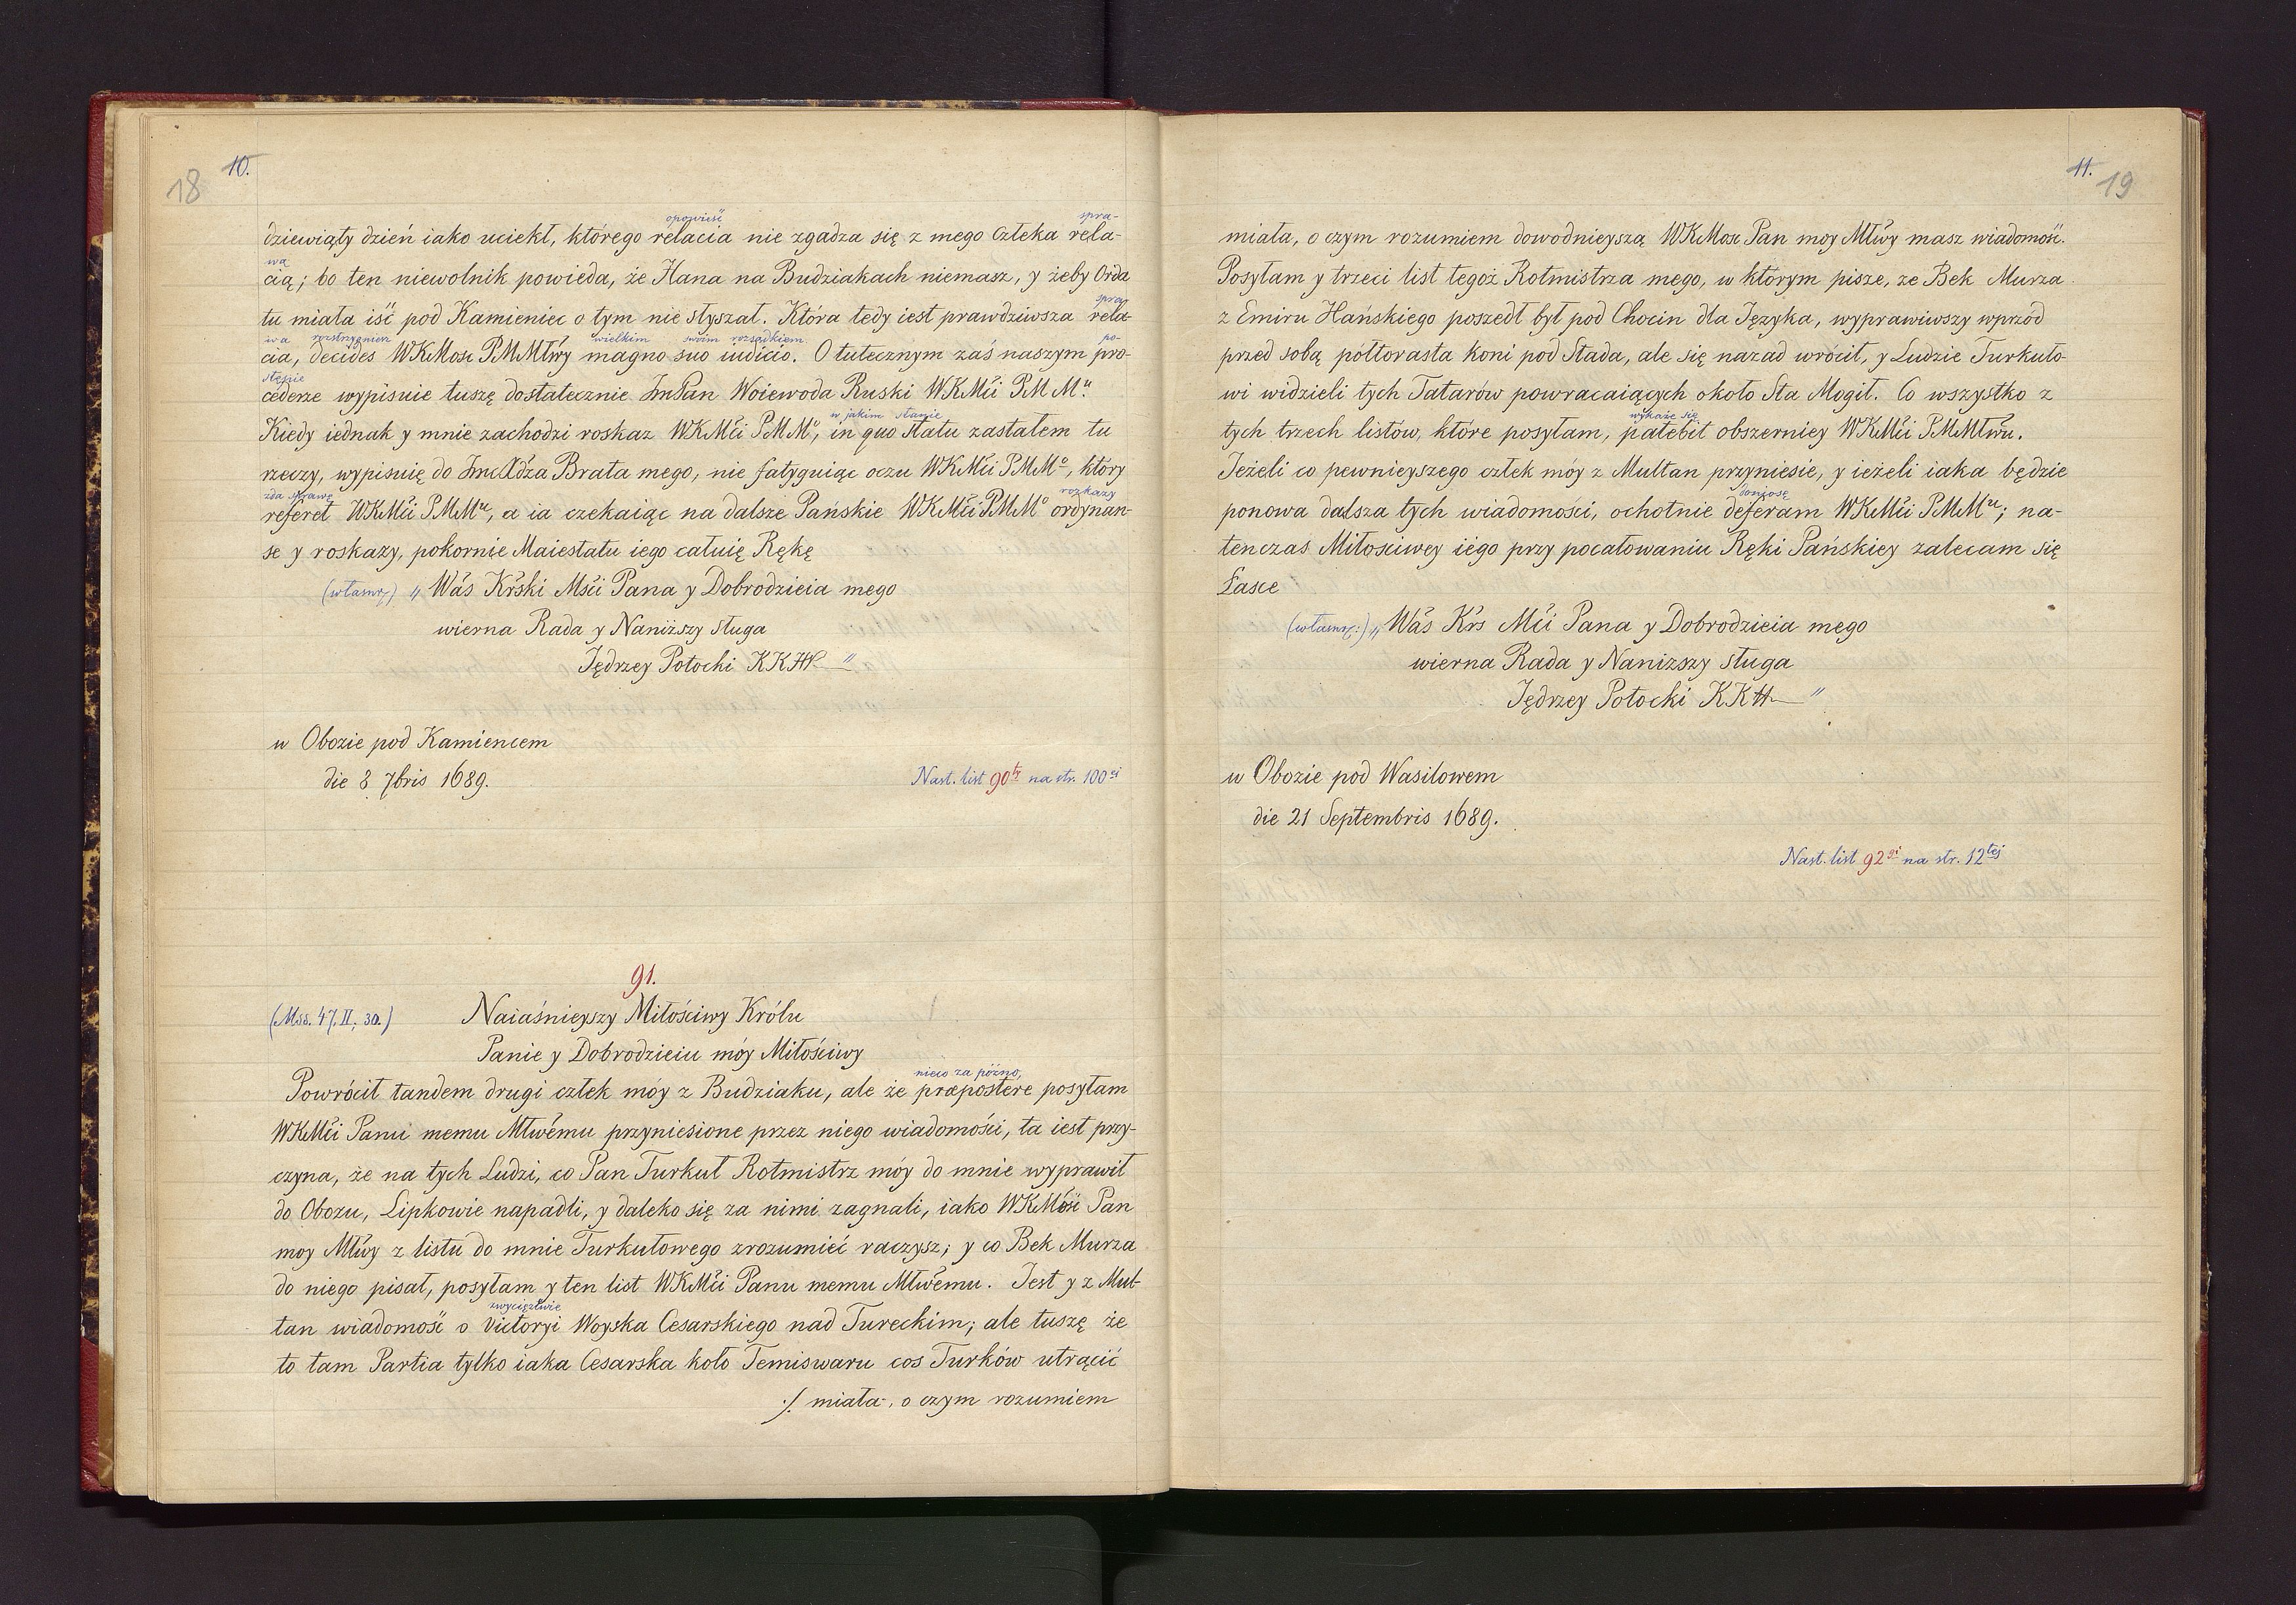 18
10.
opowieść
spra-
dziewiąty dzień iako uciekł, którego relacia nie zgadza się z mego Człeka rela-
wą
cią; bo ten niewolnik powieda, że Hana na Budziakach niemasz, y żeby Orda
spra-
tu miała iść pod Kamieniec o tym nie słyszał. Która tedy iest prawdziwsza rela-
wa rozstrzygniesz wielkim swoim rozsądkiem po-
cia, decides WKMosc PMMłwy magno suo iudicio. O tutecznym zaś naszym pro-
stępie
cederze wypisuie tuszę dostatecznie ImPan Woiewoda Ruski WKMći PMMu.
w jakim stanie
Kiedy iednak y mnie zachodzi roskaz WKMći PMMu, in quo statu zastałem tu
rzeczy, wypisuię do Imć Xdza Brata mego, nie fatyguiąc oczu WKMći PMMo, który
zda sprawę
rozkazy
referet WKMći PMMu, a ia czekaiąc na dalsze Pańskie WKMći PMMo ordynan-
se y roskazy, pokornie Maiestatu iego całuię Rękę
(własnrę.) „Wás Krski Mści Pana y Dobrodzieia mego
wierna Rada y Naniższy sługa
Jędrzey Potocki KKH "
w Obozie pod Kamiencem
die 8 7bris 1689.
Nast. list 90ty na str. 100ej
91.
(Mss. 47, II, 30.)
Naiaśnieyszy Miłościwy Królu
Panie y Dobrodzieiu móy Miłościwy
nieco za późno,
Powrócił tandem drugi człek móy z Budziaku, ale że præpostere posyłam
WKMći Panu memu Młwemu przyniesione przez niego wiadomości, ta iest przy-
czyna, że na tych Ludzi, co Pan Turkuł Rotmistrz móy do mnie wyprawił
do Obozu, Lipkowie napadli, y daleko się za nimi zagnali, iako WKMość Pan
moy Młwy z listu do mnie Turkułowego zrozumieć raczysz; y co Bek Murza
do niego pisał, posyłam y ten list WKMći Panu memu Młwemu. Jest y z Muł-
zwycięztwie
tan wiadomość o Victoryi Woyska Cesarskiego nad Tureckim; ale tuszę że
to tam Partia tylko iaka Cesarska koło Temiswaru cos Turków utrącić
./. miała, o czym rozumiem
11.
19
miała, o czym rozumiem dowodnieyszą WKMosc Pan moy Młwy masz wiadomość.
Posyłam y trzeci list tegoż Rotmistrza mego, w którym pisze, ze Bek Murza
z Emiru Hańskiego poszedł był pod Chocin dla Języka, wyprawiwszy wprzód
przed sobą półtorasta koni pod Stada, ale się nazad wrócił, y Ludzie Turkuło-
wi widzieli tych Tatarów powracaiących około Sta Mogił. Co wszystko z
wykaże się
tych trzech listów, które posyłam, patebit obszerniey WKMći PMMłwu.
Jeżeli co pewnieyszego człek móy z Multan przyniesie, y ieżeli iaka będzie
doniosę
ponowa dalsza tych wiadomości, ochotnie deferam WKMći PMMu; na-
tenczas Miłosciwey iego przy pocałowaniu Ręki Pańskiey zalecam się
Łasce
(własnrę.) „Wás Krs Mći Pana y Dobrodzieia mego
wierna Rada y Nanizszy sługa
Jędrzey Potocki KKH "
w Obozie pod Wasilowem
die 21 Septembris 1689.
Nast. list 92gi na str. 12tej